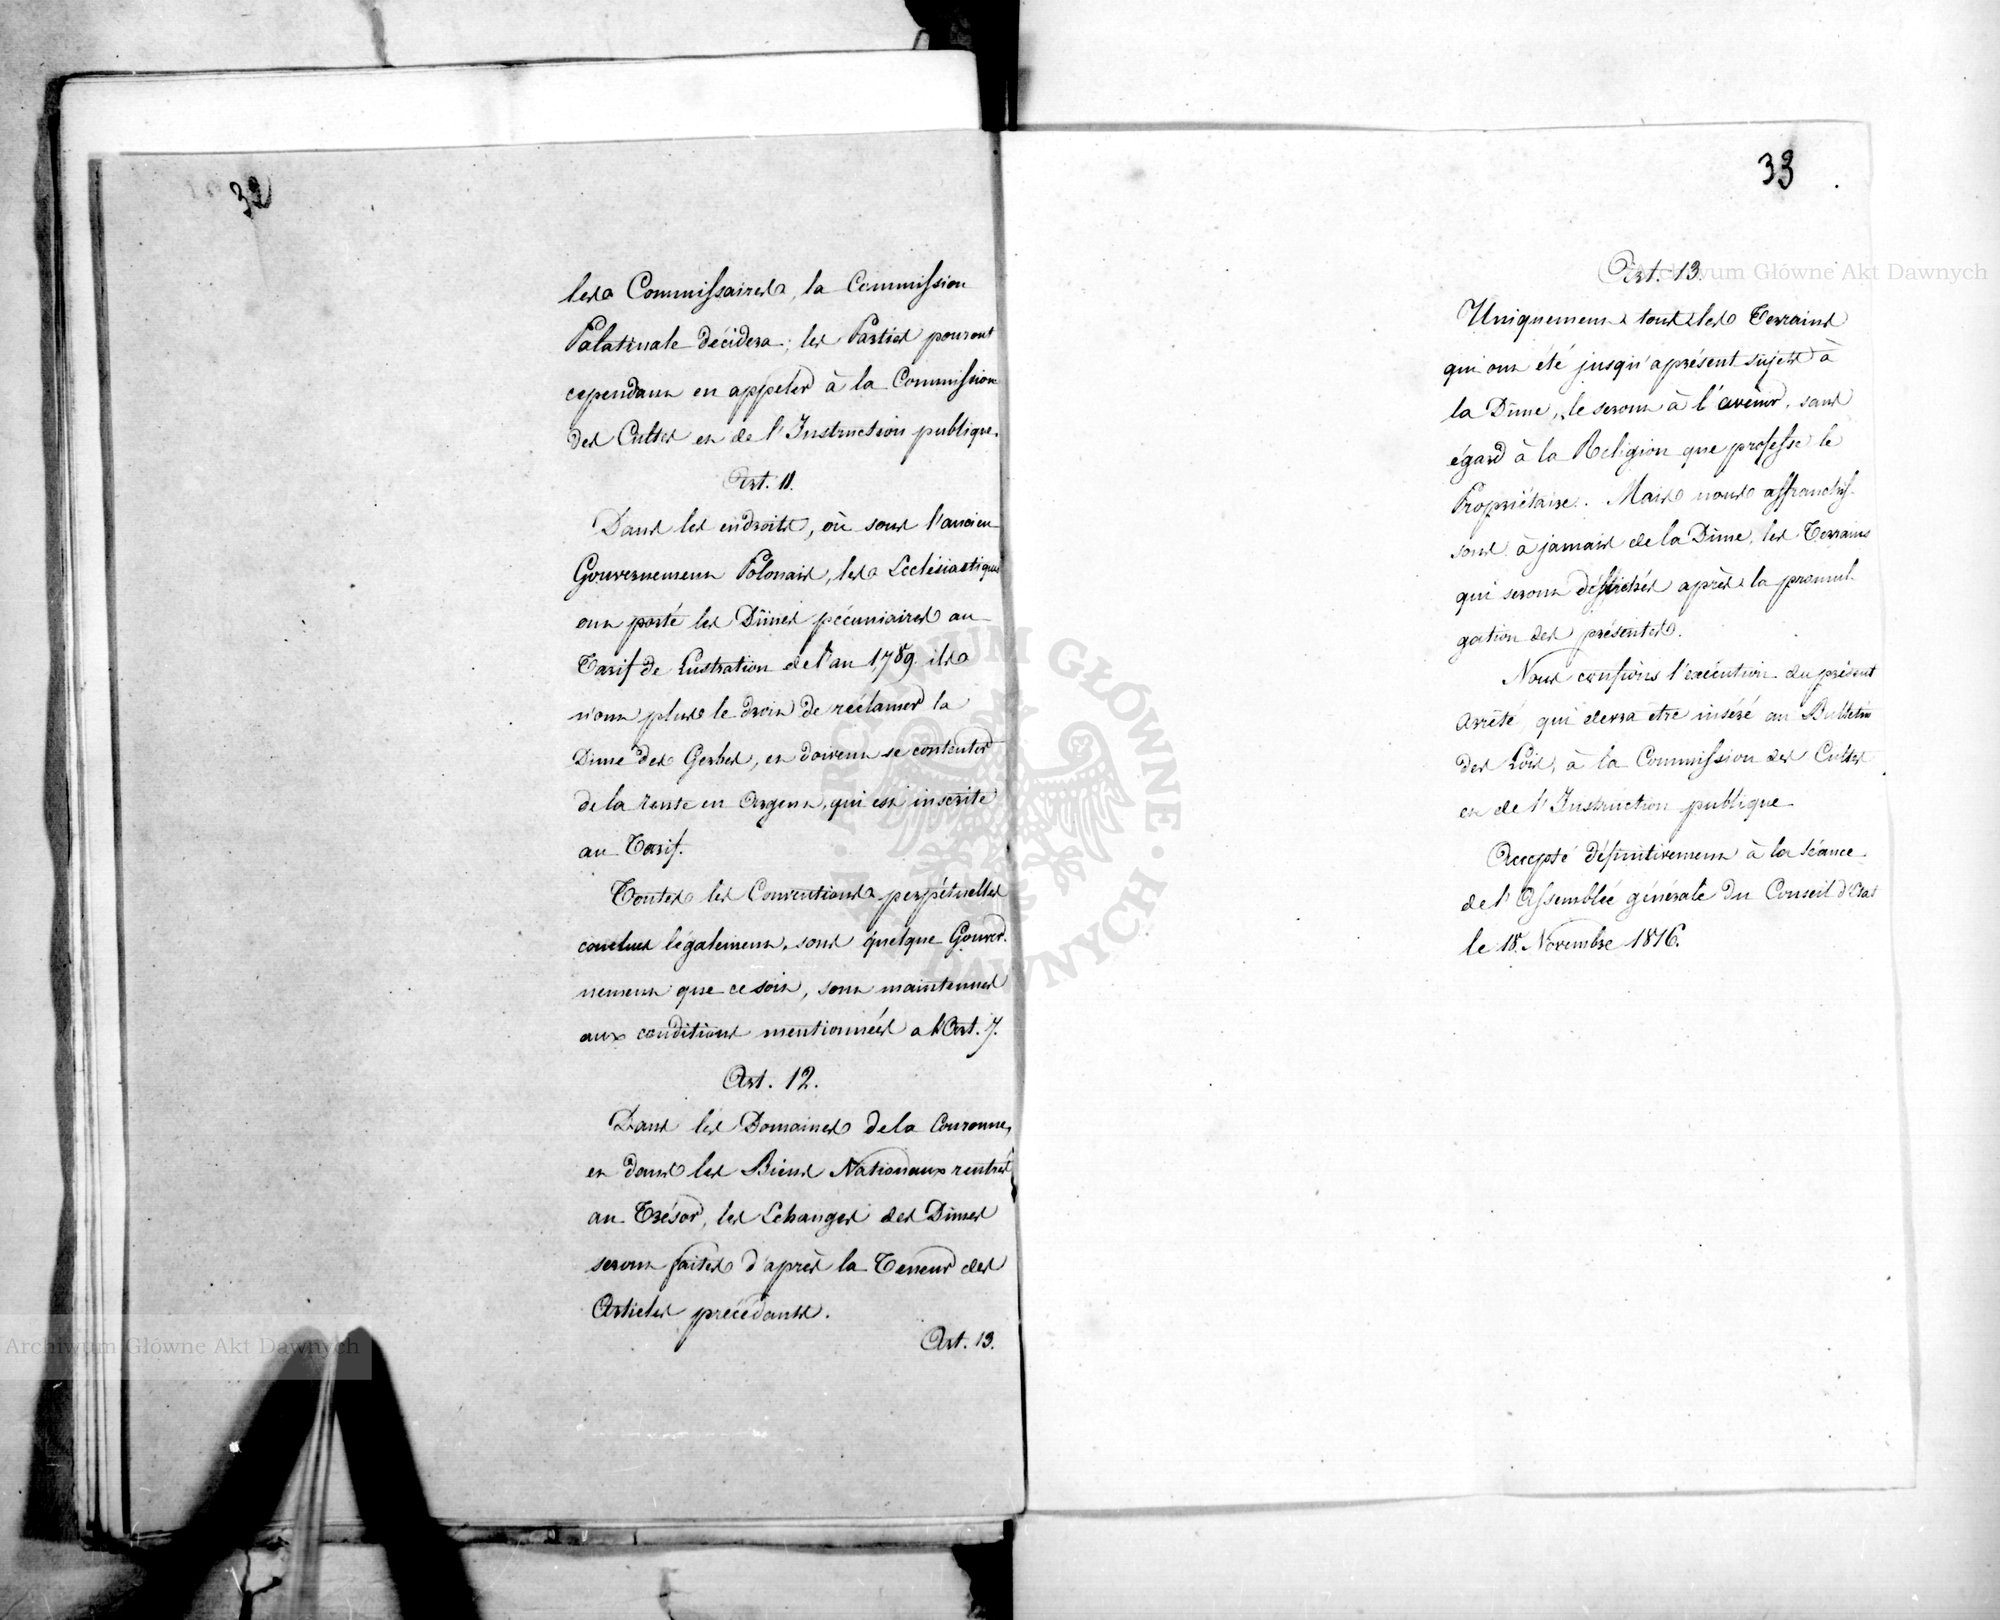 32
les Commissaires, la Commission
Palatinale décidera; les Parties pouront
cependant en appeler à la Commission
des Cultes et de l'Instruction publique.
Art. 11.
Dans les endroits, où sous l'ancien
Gouvernement Polonais, les Eclésiastiques
ont porté les Dîmes pécuniaires au
Tarif de Lustration de l'an 1789. ils
n'ont plus le droit de réclamer la
Dime des Gerbes, et doivent se contenter
de la rente en Argent, qui est inscrite
au Tarif.
Toutes les Conventions perpétuelles
conclues légalement, sous quelque Gouver-
nement que ce soit, sont maintenues
aux conditions mentionnées a l'Art. 7.
Art. 12.
Dans les Domaines de la Couronne,
et dans les Biens Nationaux rentrés
au Trésor, les Echanges des Dîmes
seront faites d'après la Teneur des
Articles précédants.
Art. 13.
33
Art. 13.
Uniquement tous les Terrains
qui ont été jusqu'aprésent sujets à
la Dîme, le seront à l'avenir, sans
égard à la Religion que professe le
Propriétaire. Mais nous affranchis-
sons à jamais de la Dîme, les Terrains
qui seront défrichés après la promul-
gation des présentes.
Nous confions l'exécution du présent
Arrêté qui devra etre inséré au Bulletin
des Lois, à la Commission des Cultes
et de l'Instruction publique
Accepté définitivement à la séance
de l'Assemblée générale du Conseil d'Etat
le 18. Novembre 1816.
Archiwum Główne Akt Dawnych
Archiwum Główne Akt Dawnych
ARCHIWUM GŁÓWNE AKT DAWNYCH